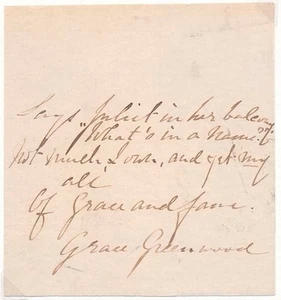 Says Juliet in her balcony
"What's in a name?"
Not much I own, and yet my
all
Of Grace and fame.
Grace Greenwood